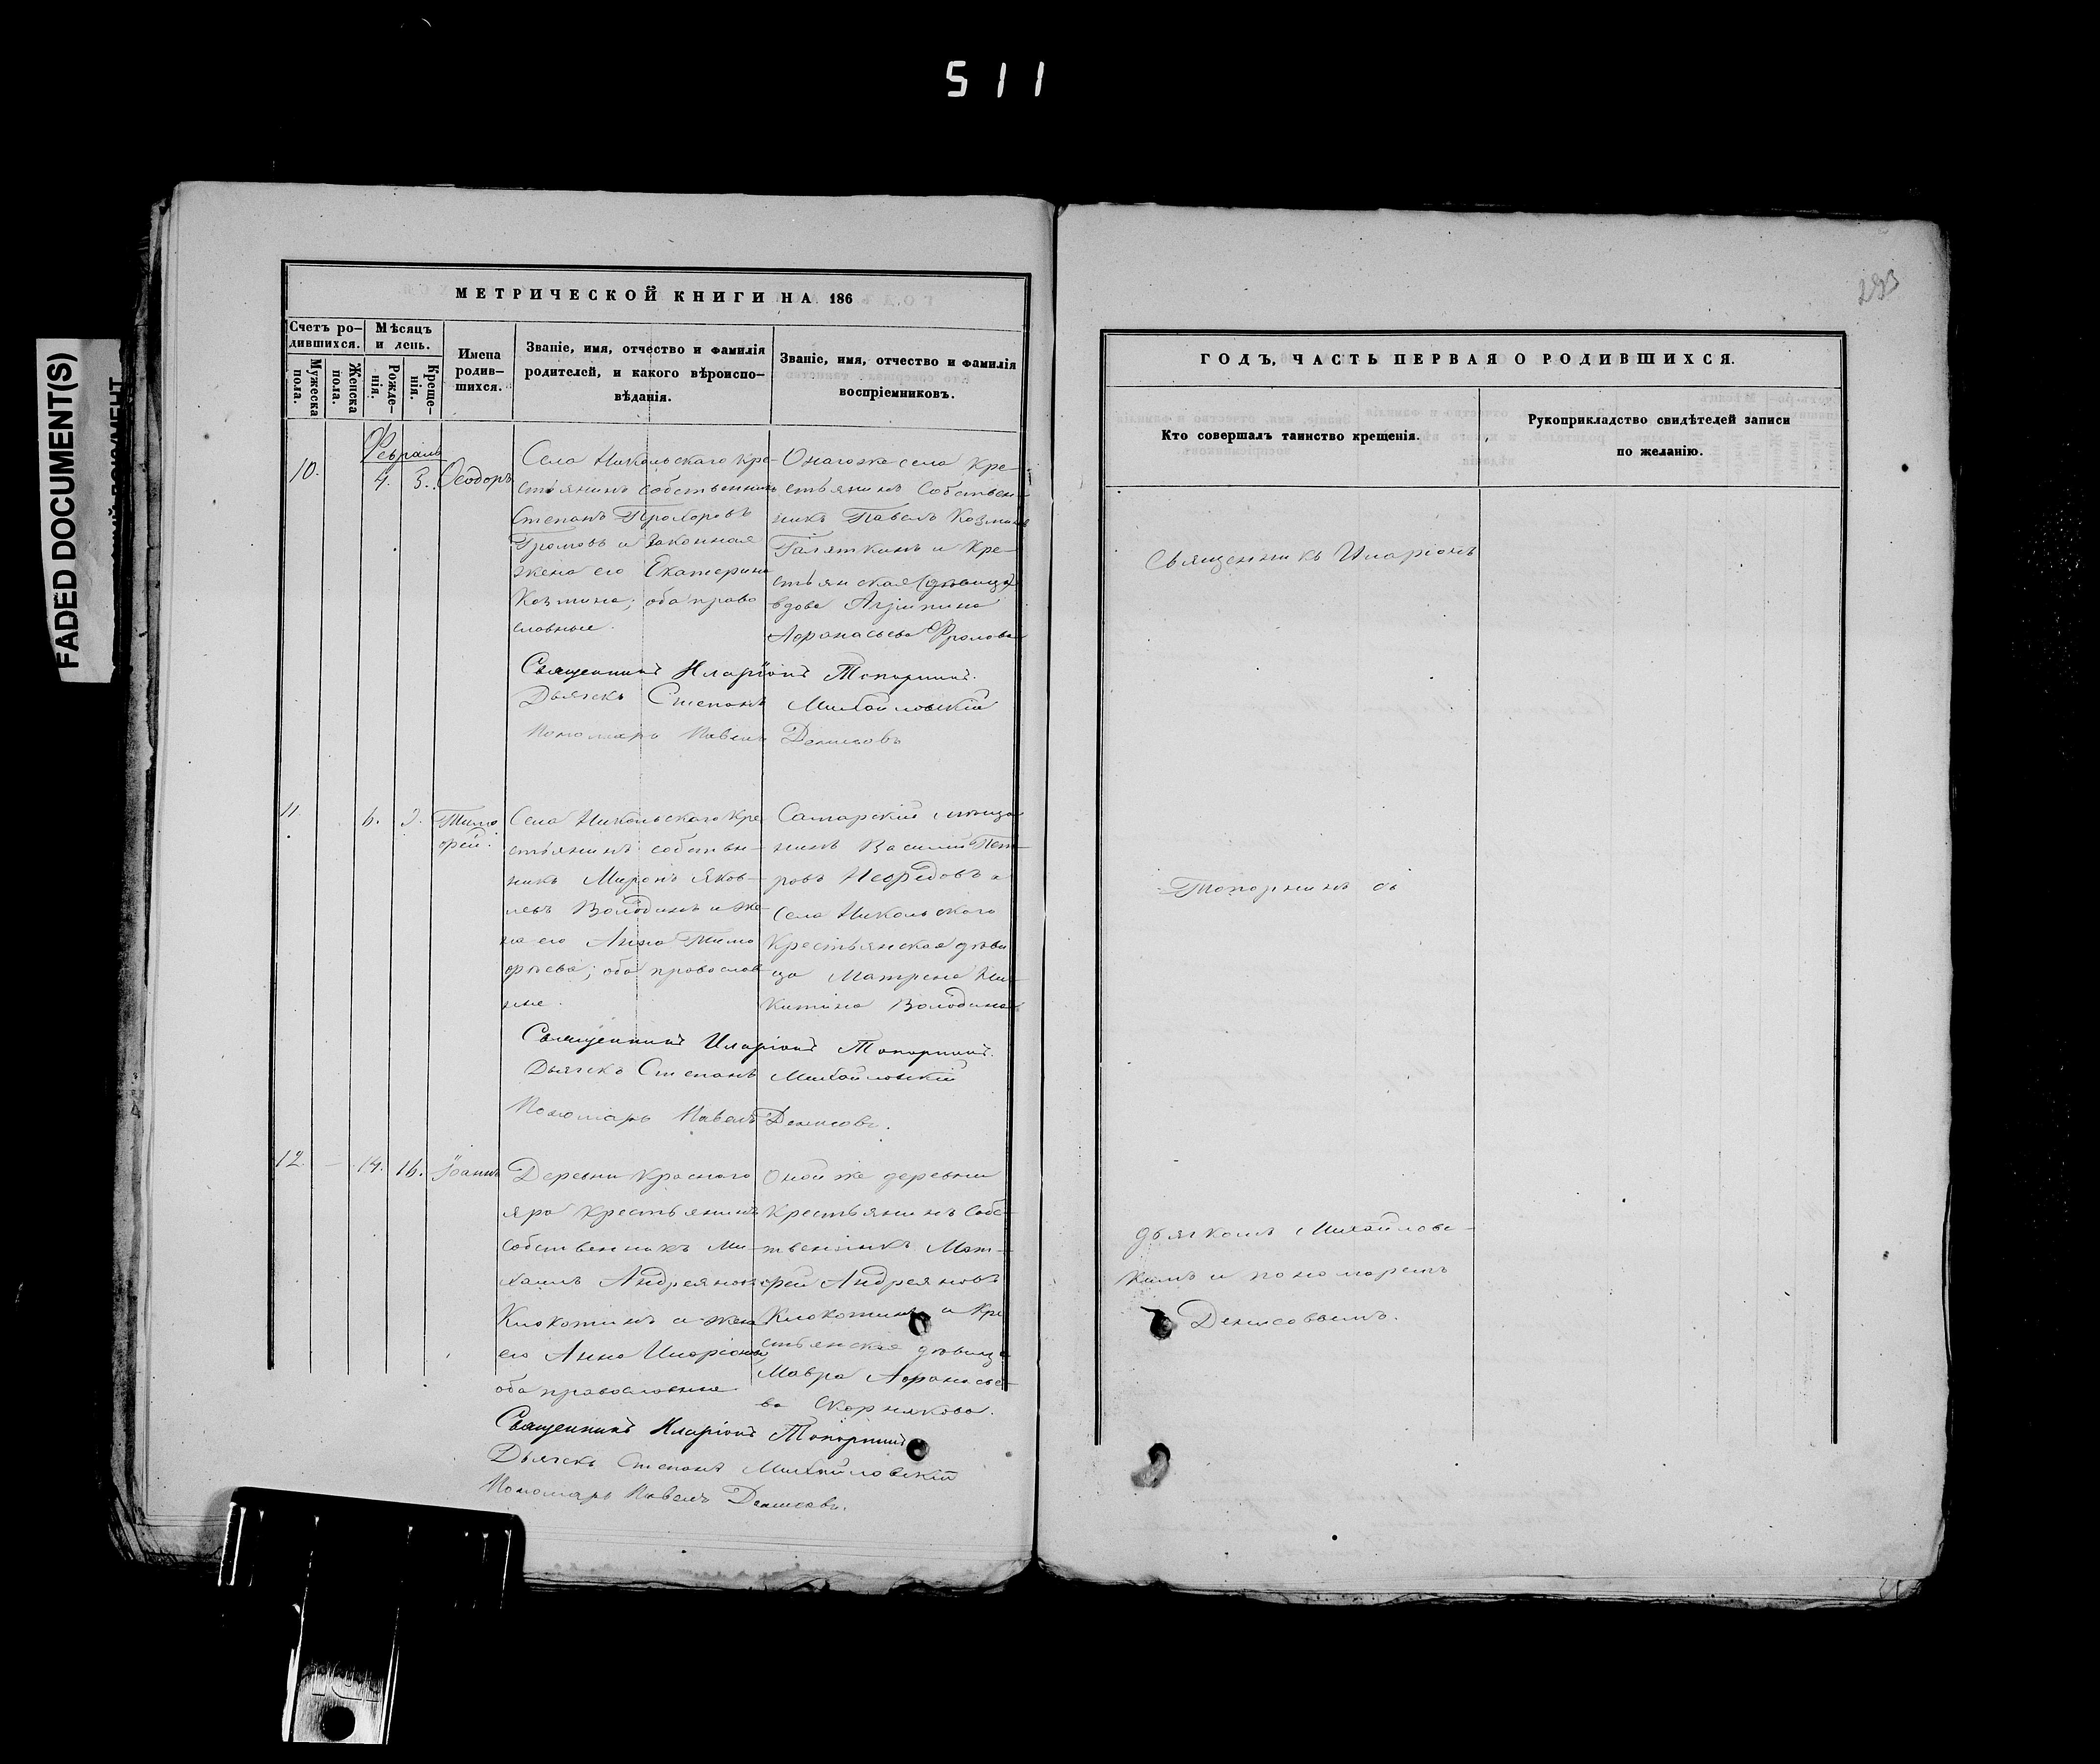 511
FADED DOCUMENT(S)
МЕТРИЧЕСКОЙ КНИГИ НА 186
Счетъ ро-
дившихся.
Мѣсяцъ
и день.
Мужеска
пола.
Женска
пола.
Рожде-
нія.
Креще-
нія.
Имена
родив-
шихся.
Званіе, имя, отчество и фамилія
родителей, и какого вѣроиспо-
вѣданія.
Званіе, имя, отчество и фамилія
воспріемниковъ.
Февраль
10. 4. 5. Ѳеодоръ
Села Никольскаго кре-
стьянинъ собственникъ
Степанъ Прохоровъ
Громовъ и законная
жена его Екатерина
Козмина; оба право
славные.
Онагоже села Кре-
стьянинъ Собствен-
никъ Павелъ Козминъ
Галяткинъ и Кре-
стьянская (дѣвица)
вдова Агрипина
Афанасьева Фролова
Священникъ Иларіонъ Топорнинъ.
Дьячекъ Степанъ Михайловскій
Пономарь Павелъ Денисовъ
11. 6. Тимо
фей.
Села Никольскаго Кре
стьянинъ собствен-
никъ Миронъ Яков-
левъ Володинъ и же-
на его Анна Тимо
фѣева; оба православ
ные.
Самарскій мѣща
нинъ Василій Пет-
ровъ и
села Никольскаго
Крестьянская дѣви
ца Матрена Ни-
китина Володина
Священникъ Иларіонъ Топорнинъ.
Дьячекъ Степанъ Михайловскій
Пономарь Павелъ Денисовъ.
12. 14. 16. Іоаннъ
Деревни Краснаго
яра крестьянинъ
собственникъ Ми-
хаилъ Андреяновъ
Клокотинъ и жена
его Анна Иларіонова
оба православные
Оной же деревни
Крестьянинъ Собс-
твенникъ Мат-
фей Андреяновъ
Клокотинъ и Кре
стьянская дѣвица
Мавра Афанасье-
ва Скорнякова.
Священникъ Иларіонъ Топорнинъ
Дьячекъ Степанъ Михайловскій
Пономарь Павелъ Денисовъ.
293
ГОДЪ, ЧАСТЬ ПЕРВАЯ О РОДИВШИХСЯ.
Кто совершалъ таинство крещенія.
Рукоприкладство свидѣтелей записи
по желанію.
Священникъ Иларіонъ
Топорнинъ съ
дьячкомъ Михайловс-
кимъ и пономаремъ
Денисовымъ.